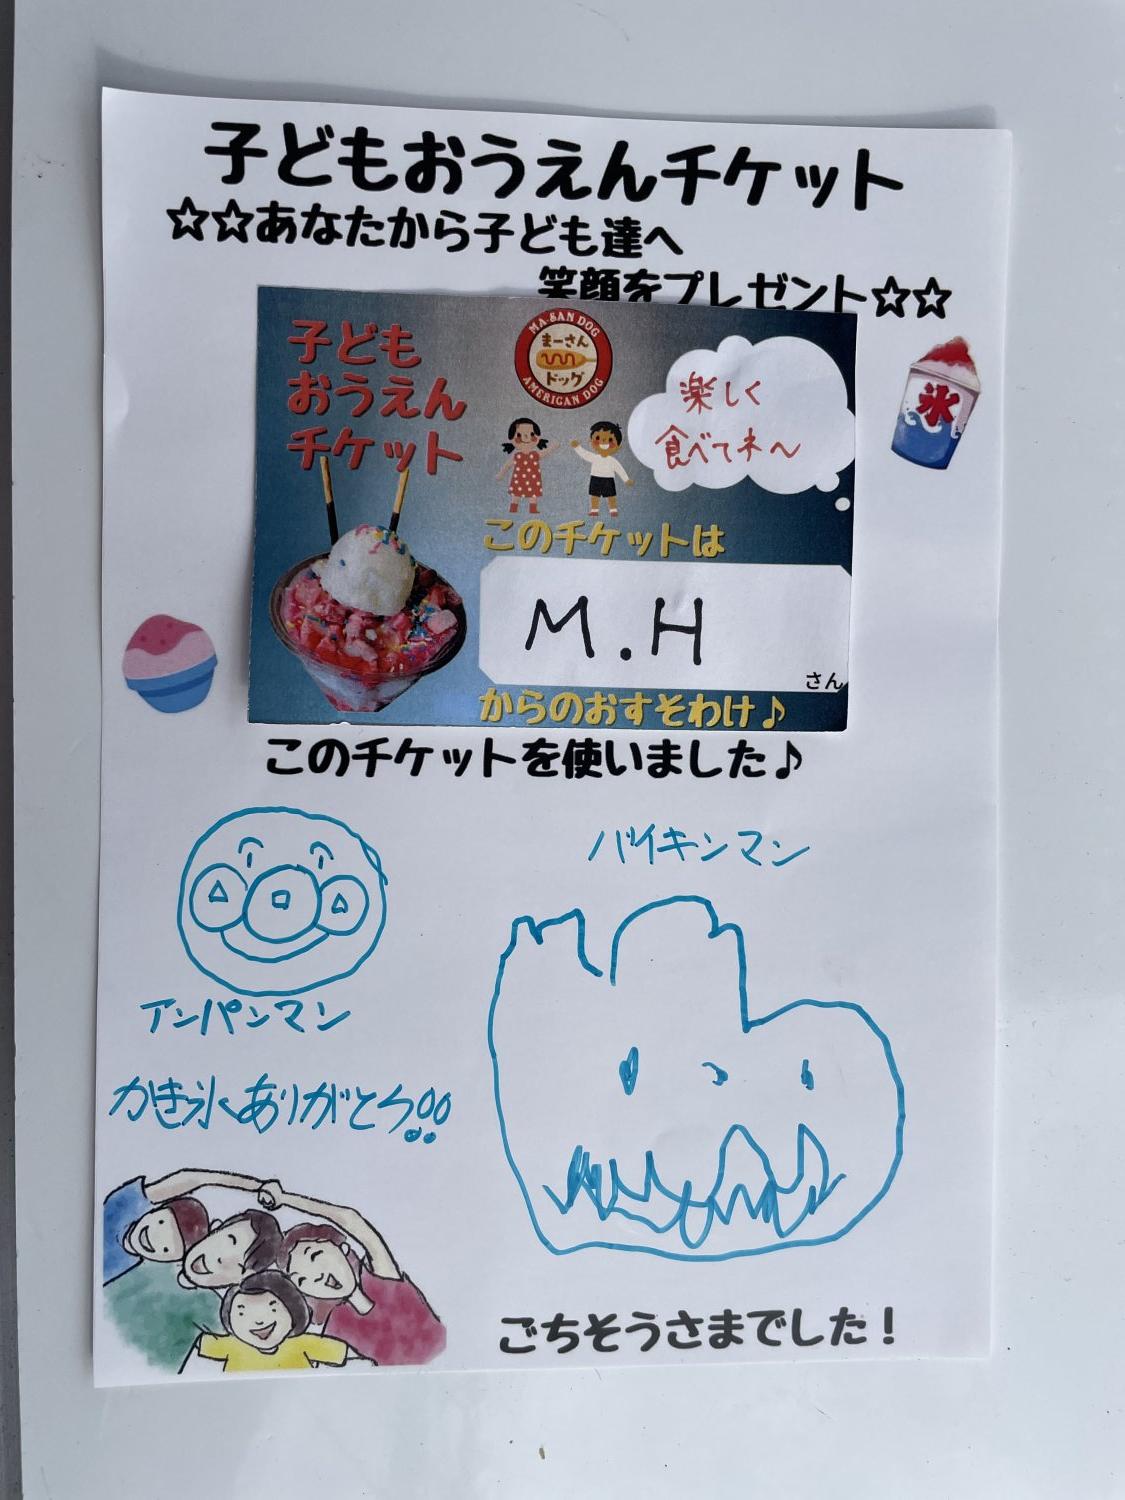 子どもおうえんチケット
☆☆あなたから子ども達へ
笑顔をプレゼント☆☆
子ども
おうえん
チケット
MA-SAN DOG
まーさん
ドッグ
AMERICAN DOG
楽しく
食べてネ〜
氷
このチケットは
M.H
さん
からのおすそわけ♪
このチケットを使いました♪
バイキンマン
アンパンマン
かき氷ありがとう!!
ごちそうさまでした！